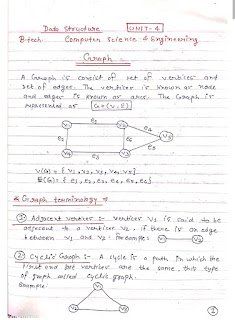 Data Structure UNIT-4
B.tech: Computer Science & Engineering
Graph :-
A Graph is consist of set of vertices and
set of edges. The vertices is known as node
and edges is known as arcs. The Graph is
represented as G=(V,E)
V1 e1 V2 e4
V5
e2 e6
V3 e3 V4 e5
V(G) = { V1, V2, V3, V4, V5}
E(G) = { e1, e2, e3, e4, e5, e6}
Graph terminology →
1) Adjacent vertices :- vertices V1 is said to be
adjacent to a vertices V2, if there is an edge
between V1 and V2. For example: V1 V2
2) Cyclic Graph :- A cycle is a path in which the
first and last vertices are the same, this type
of graph called cyclic graph.
Example: V1
V2 V3
1